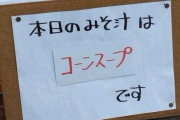 本日のみそ汁は
コーンスープ
です